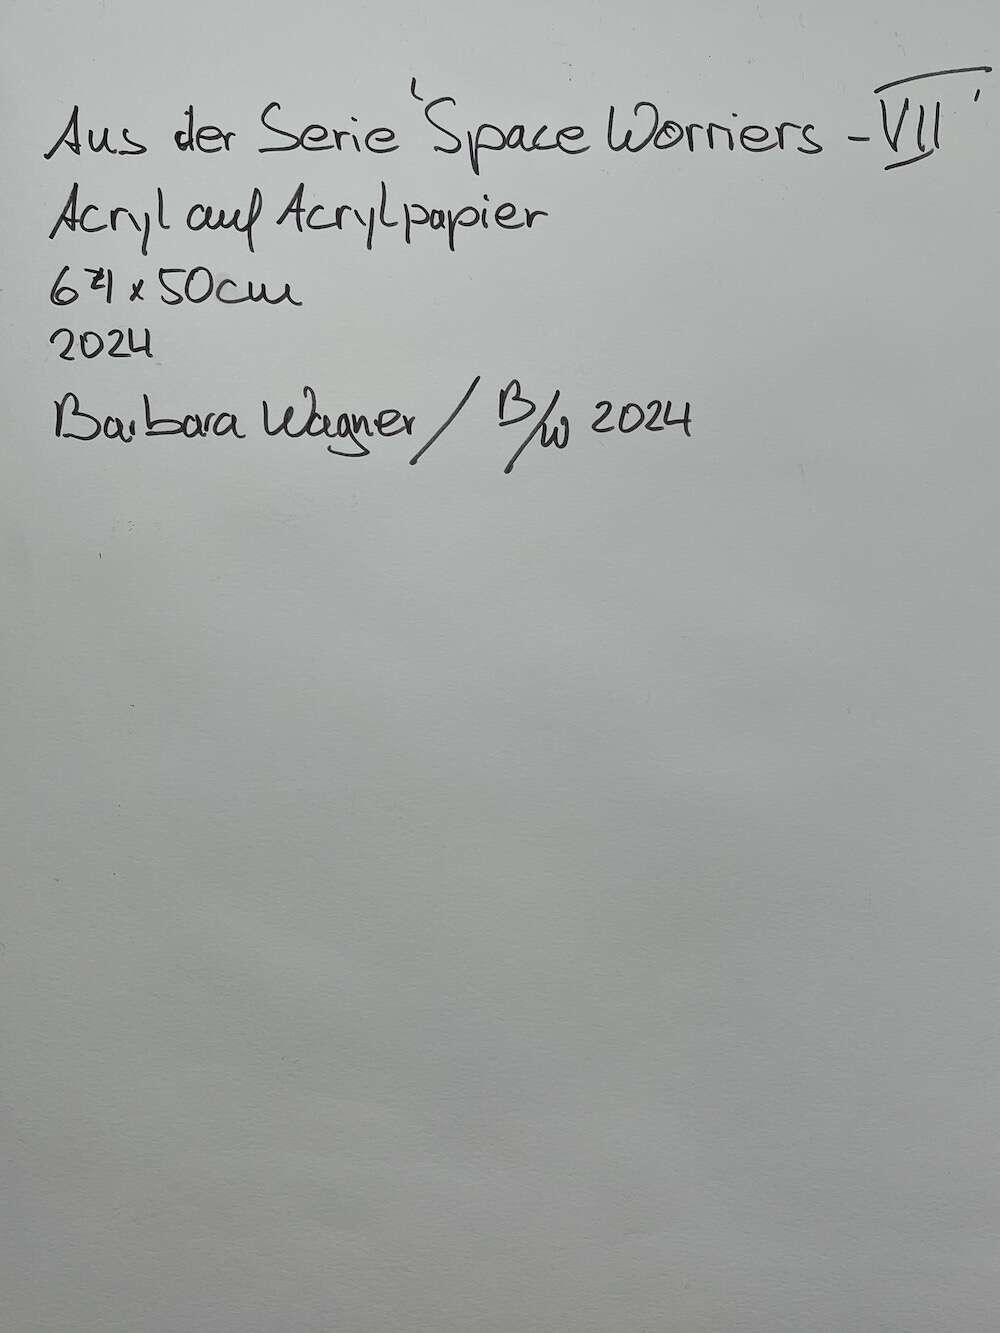 Aus der Serie 'Space Worriers - VII'
Acryl auf Acrylpapier
x 50cm
2024
Barbara Wagner / B/W 2024